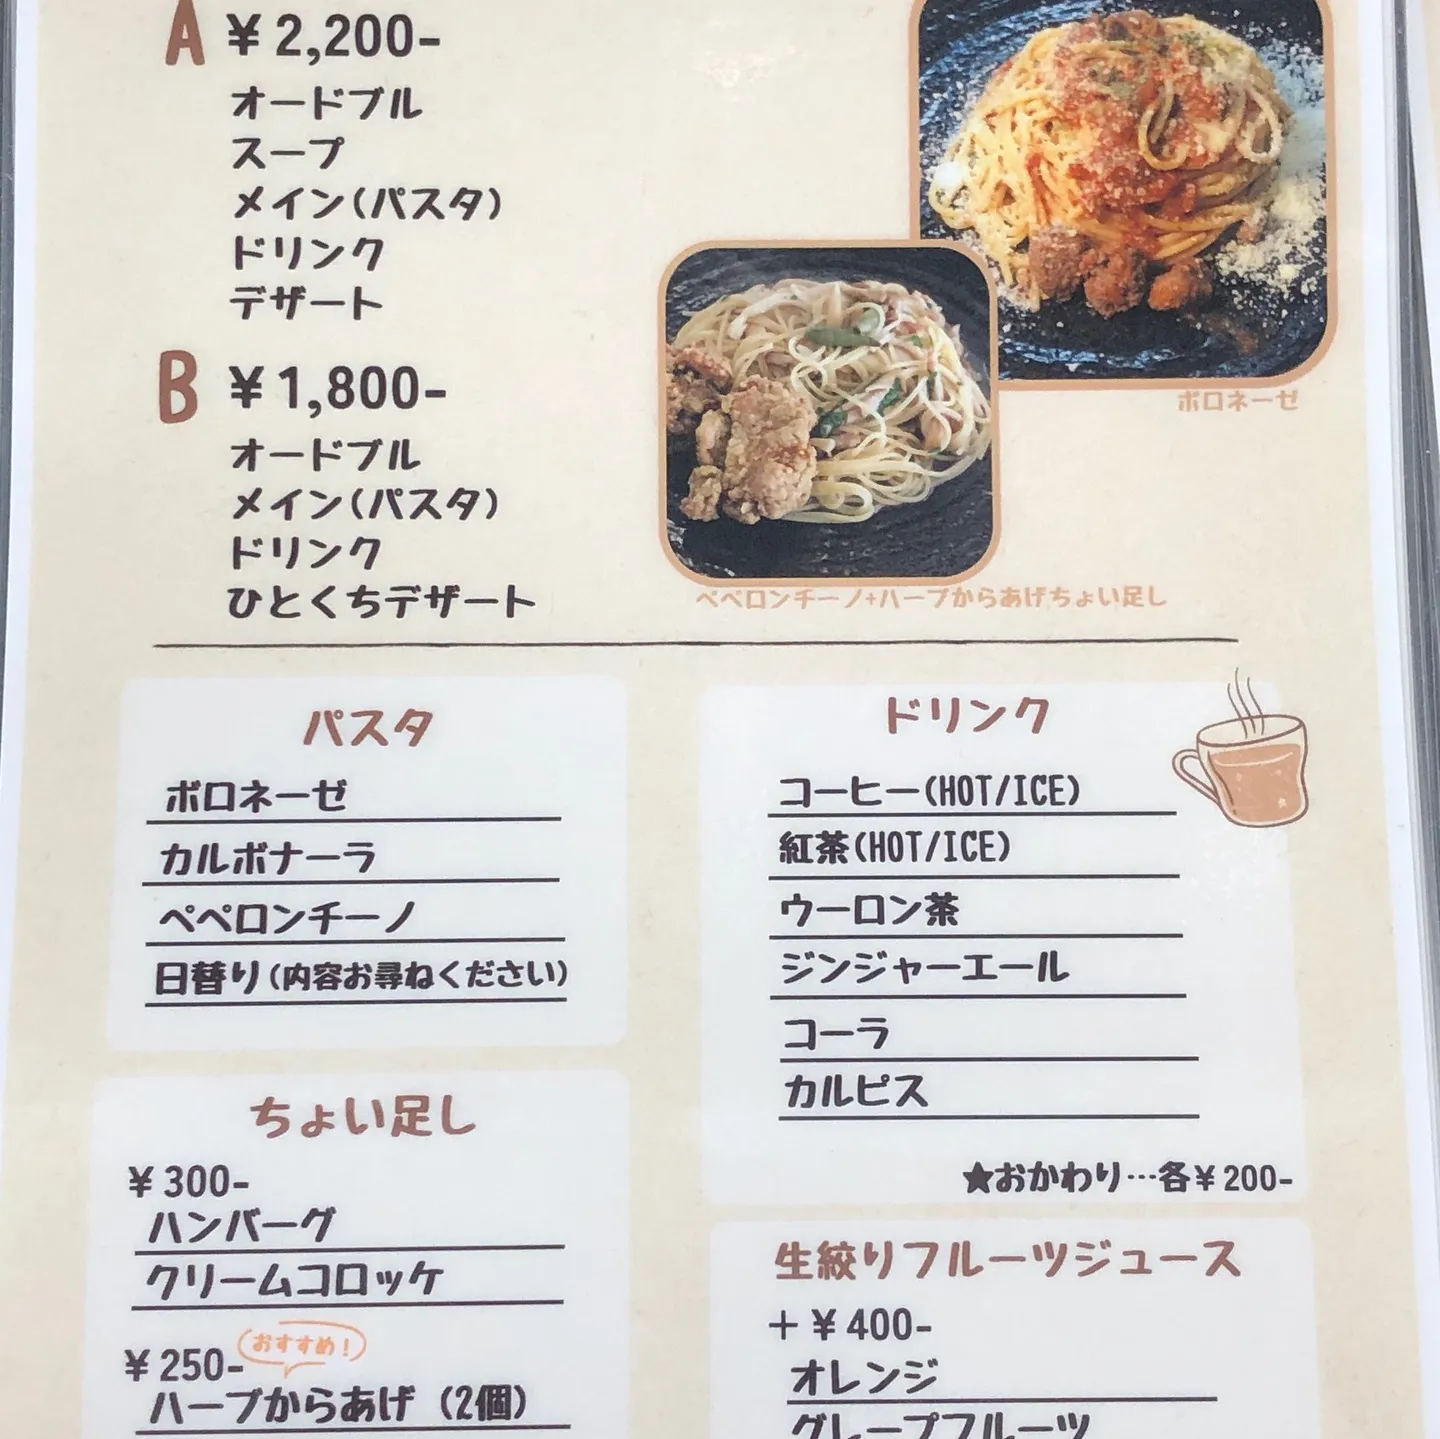 A ¥2,200-
オードブル
スープ
メイン(パスタ)
ドリンク
デザート
ボロネーゼ
B ¥1,800-
オードブル
メイン(パスタ)
ドリンク
ひとくちデザート
ペペロンチーノ+ハーブからあげちょい足し
パスタ
ボロネーゼ
カルボナーラ
ペペロンチーノ
日替り(内容お尋ねください)
ちょい足し
¥300-
ハンバーグ
クリームコロッケ
おすすめ!
¥250-
ハーブからあげ (2個)
ドリンク
コーヒー(HOT/ICE)
紅茶(HOT/ICE)
ウーロン茶
ジンジャーエール
コーラ
カルピス
★おかわり…各¥200-
生絞りフルーツジュース
+¥400-
オレンジ
グレープフルーツ